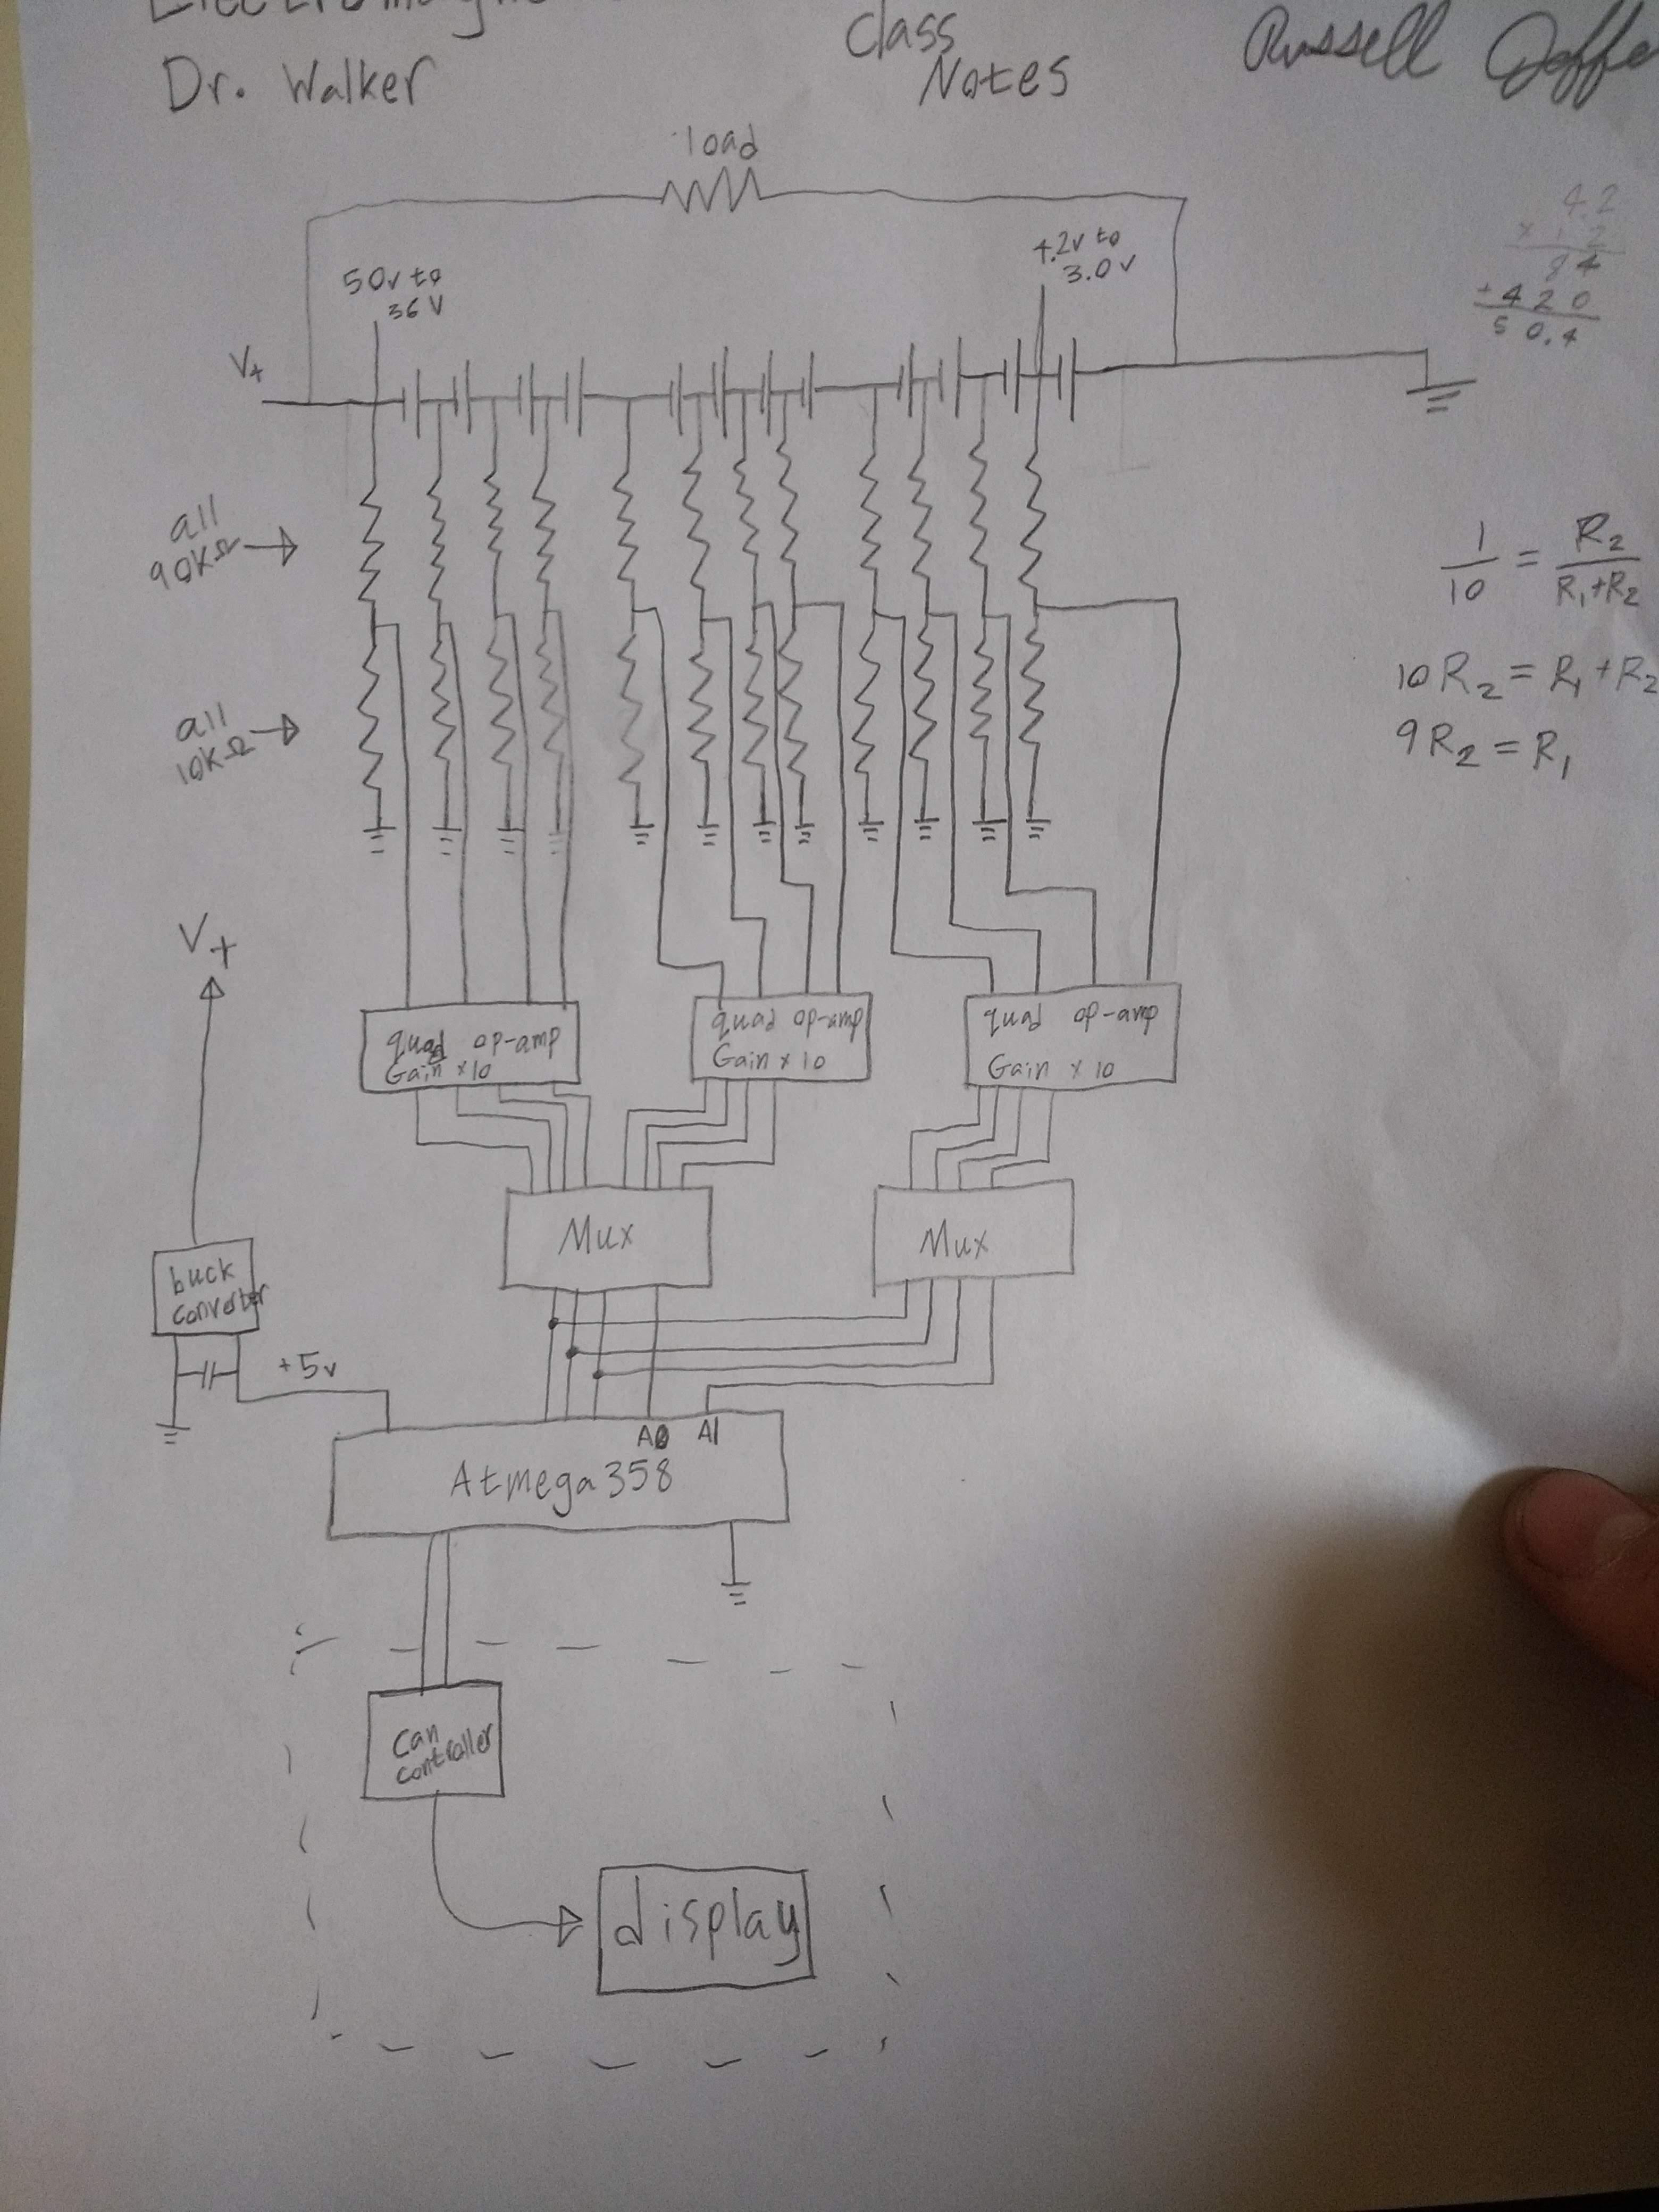 Dr. Walker
Class
Notes
Russell
load
4.2
x 12
84
+420
50.4
50v to
36 V
4.2v to
3.0 v
V+
all
90KΩ →
1/10 = R2/R1+R2
10R2 = R1 + R2
9R2 = R1
all
10KΩ →
V+
quad op-amp
Gain x10
quad op-amp
Gain x 10
quad op-amp
Gain x 10
Mux
Mux
buck
converter
+5v
A0 A1
Atmega358
Can
controller
display